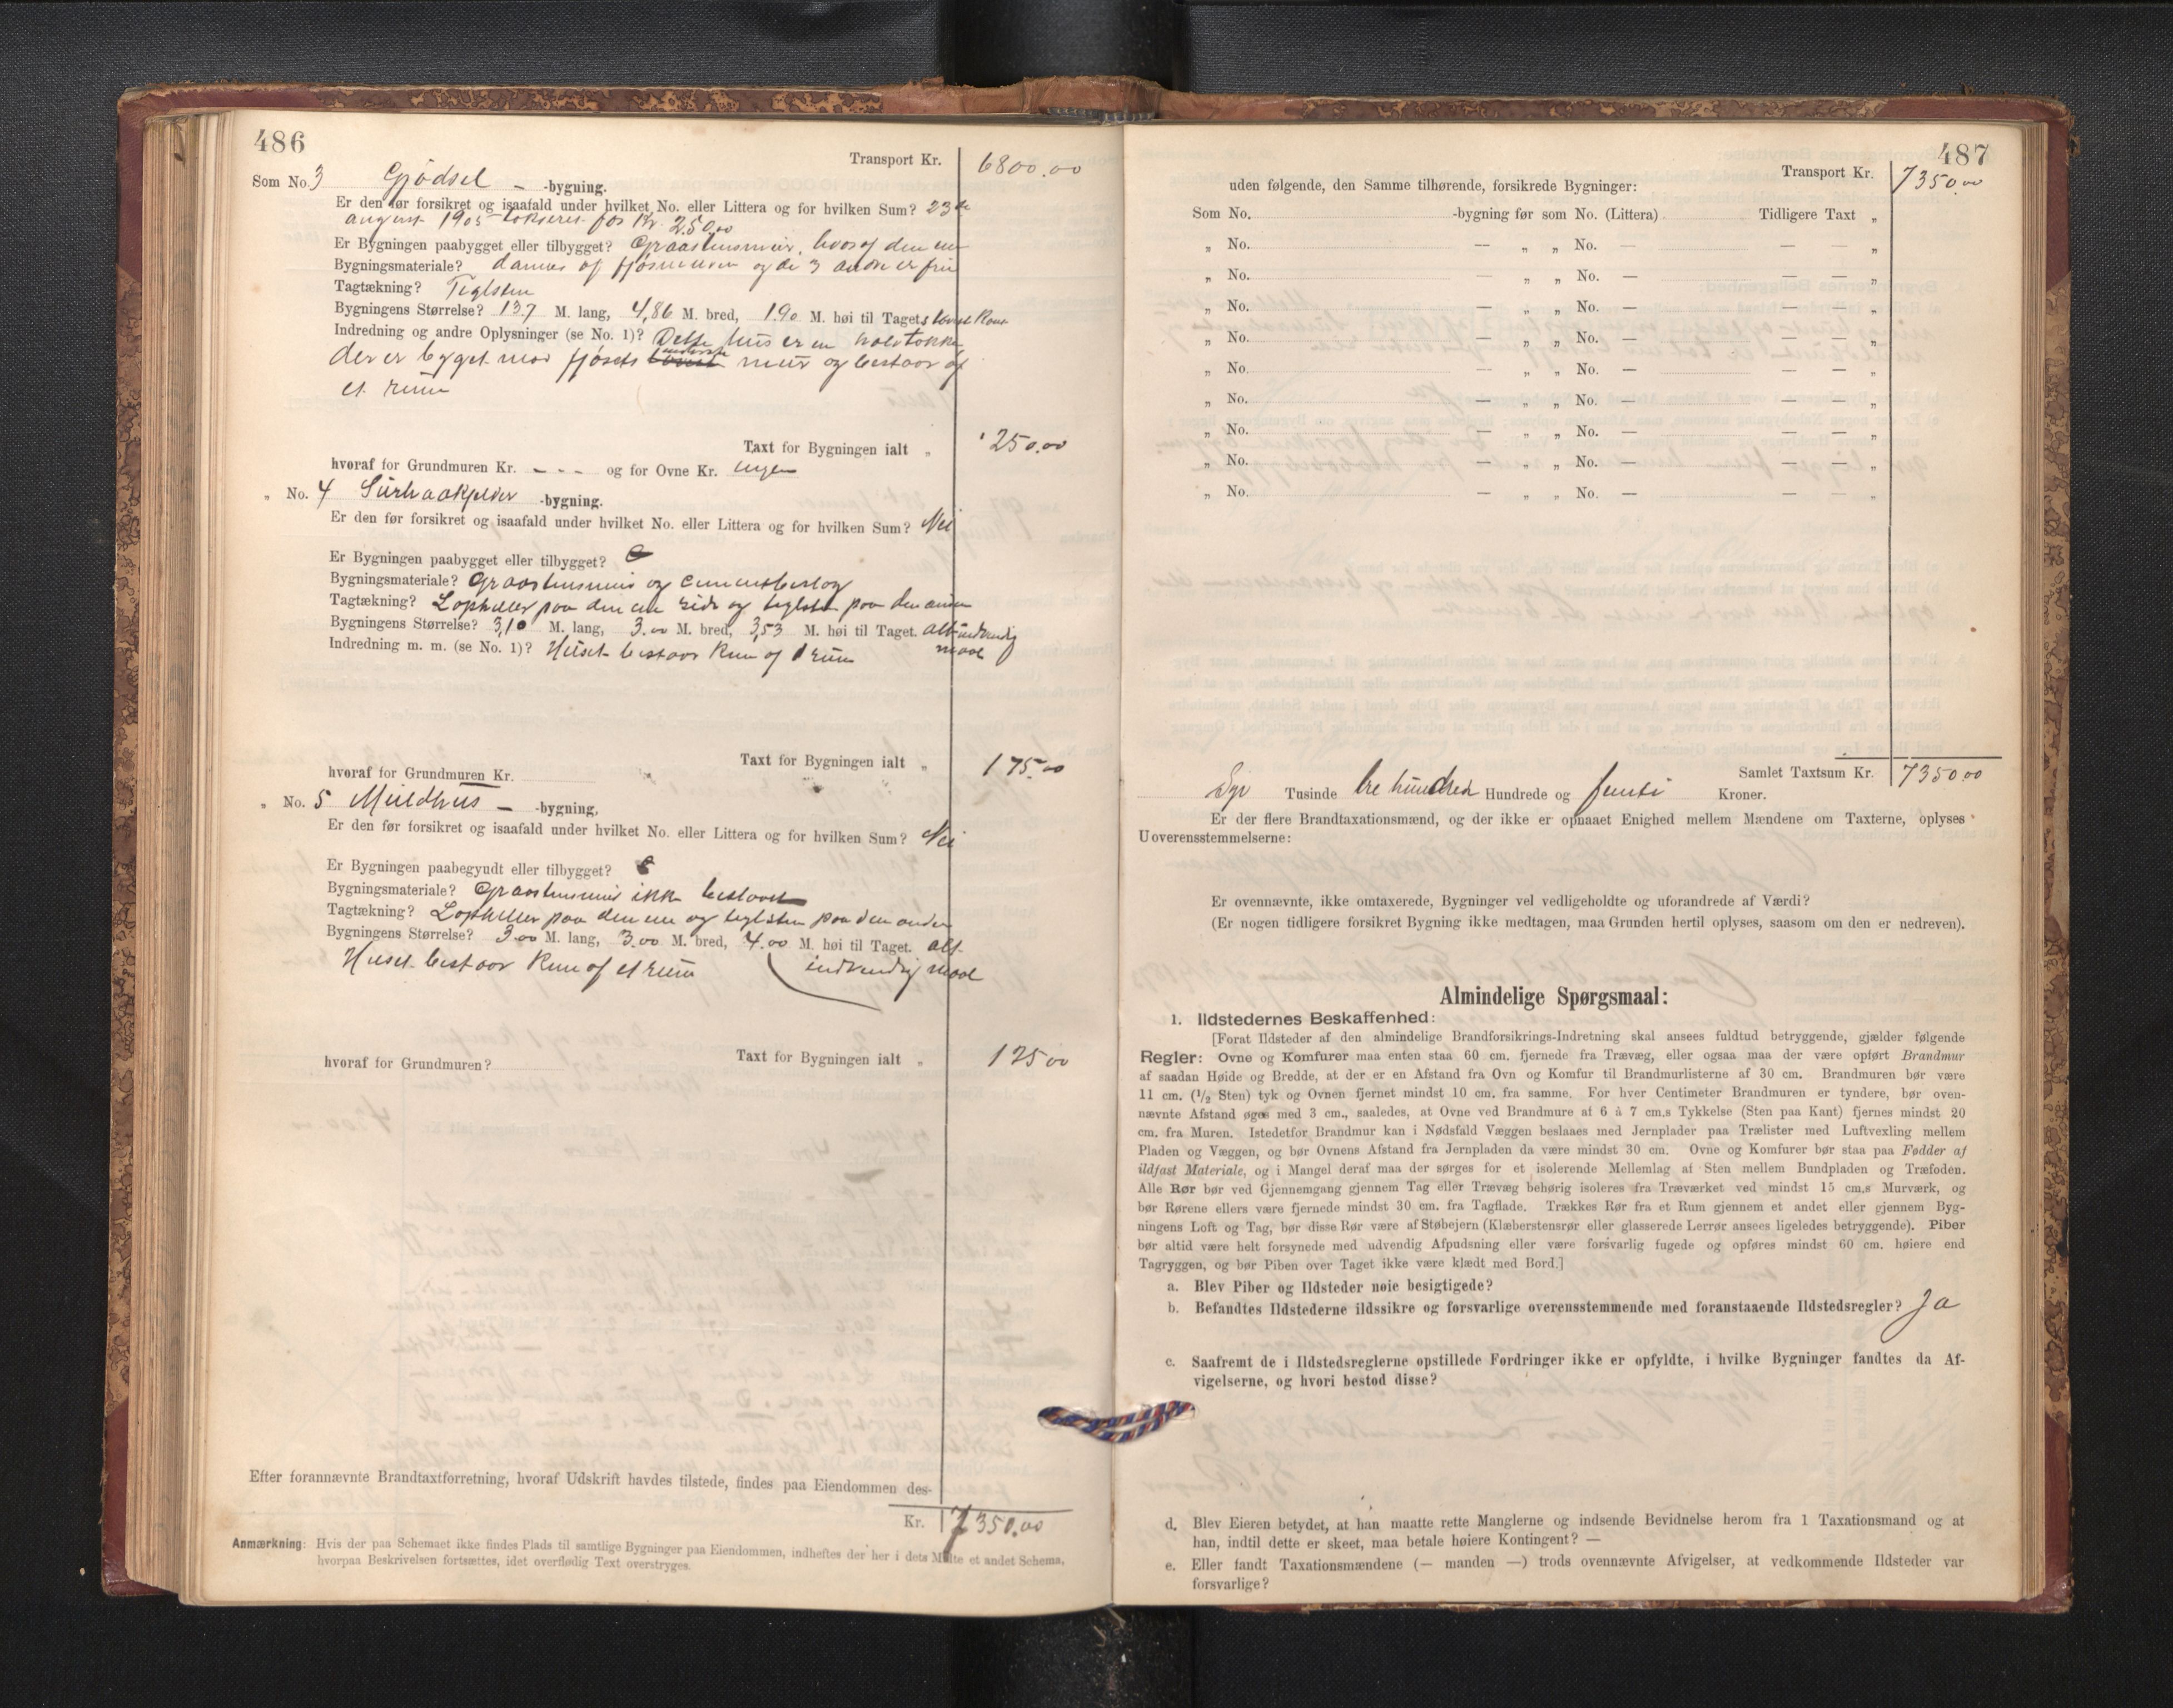 486
Transport Kr. 6800.00
Som No. 3 Gjødsel - -bygning.
Er den før forsikret og isaafald under hvilket No. eller Littera og for hvilken Sum? 23de
august 1905 for Kr. 250.00
Er Bygningen paabygget eller tilbygget? Graastensmur, hvoraf den ene
Bygningsmateriale? dannes af fjøsmuren og de 3 andre er frie
Tagtækning? Teglsten
Bygningens Størrelse? 13.7 M. lang, 4,86 M. bred, 1.90 M. høi til Taget
Indredning og andre Oplysninger (se No. 1)? Dette hus er en
der er bygget mod fjøsets underste mur og bestaar af
et rum
Taxt for Bygningen ialt „ 250.00
hvoraf for Grundmuren Kr. - - - og for Ovne Kr. ingen
„ No. 4 -bygning.
Er den før forsikret og isaafald under hvilket No. eller Littera og for hvilken Sum? Nei
Er Bygningen paabygget eller tilbygget?
Bygningsmateriale? Graastensmur og
Tagtækning? paa den ene side og teglsten paa den anden
Bygningens Størrelse? 3,10 M. lang, 3.00 M. bred, 3,53 M. høi til Taget. alt indvendig
Indredning m. m. (se No. 1)? Huset bestaar kun af 1 rum maal
Taxt for Bygningen ialt „ 175.00
hvoraf for Grundmuren Kr.
„ No. 5 Muldhus - -bygning,
Er den før forsikret og isaafald under hvilket No. eller Littera og for hvilken Sum? Nei
Er Bygningen paabegyndt eller tilbygget?
Bygningsmateriale? Graastensmur ikke
Tagtækning? paa den ene og teglsten paa den anden
Bygningens Størrelse? 3.00 M. lang, 3.00 M. bred, 4.00 M. høi til Taget. alt
Huset bestaar kun af et rum indvendig maal
hvoraf for Grundmuren? Taxt for Bygningen ialt „ 125.00
Efter forannævnte Brandtaxtforretning, hvoraf Udskrift havdes tilstede, findes paa Eiendommen des-
Kr. 7350.00
Anmærkning: Hvis der paa Schemaet ikke findes Plads til samtlige Bygninger paa Eiendommen, indheftes der her i dets Midte et andet Schema,
hvorpaa Beskrivelsen fortsættes, idet overflødig Text overstryges.
487
Transport Kr. 7350.00
uden følgende, den Samme tilhørende, forsikrede Bygninger:
Som No. -bygning før som No. (Littera) Tidligere Taxt „
„ No. — „ „ No. — — — „
„ No. — „ „ No. — — — „
„ No. — „ „ No. — — — „
„ No. — „ „ No. — — — „
„ No. — „ „ No. — — — „
„ No. — „ „ No. — — — „
„ No. — „ „ No. — — — „
„ No. — „ „ No. — — — „
„ No. — „ „ No. — — — „
Samlet Taxtsum Kr. 7350.00
Syv Tusinde tre hundred Hundrede og femti Kroner.
Er der flere Brandtaxationsmænd, og der ikke er opnaaet Enighed mellem Mændene om Taxterne, oplyses
Uoverensstemmelserne:
Er ovennævnte, ikke omtaxerede, Bygninger vel vedligeholdte og uforandrede af Værdi?
(Er nogen tidligere forsikret Bygning ikke medtagen, maa Grunden hertil oplyses, saasom om den er nedreven).
Almindelige Spørgsmaal:
1. Ildstedernes Beskaffenhed:
[Forat Ildsteder af den almindelige Brandforsikrings-Indretning skal ansees fuldtud betryggende, gjælder følgende
Regler: Ovne og Komfurer maa enten staa 60 cm. fjernede fra Trævæg, eller ogsaa maa der være opført Brandmur
af saadan Høide og Bredde, at der er en Afstand fra Ovn og Komfur til Brandmurlisterne af 30 cm. Brandmuren bør være
11 cm. (1/2 Sten) tyk og Ovnen fjernet mindst 10 cm. fra samme. For hver Centimeter Brandmuren er tyndere, bør oven-
nævnte Afstand øges med 3 cm., saaledes, at Ovne ved Brandmure af 6 à 7 cm.s Tykkelse (Sten paa Kant) fjernes mindst 20
cm. fra Muren. Istedetfor Brandmur kan i Nødsfald Væggen beslaaes med Jernplader paa Trælister med Luftvexling mellem
Pladen og Væggen, og bør Ovnens Afstand fra Jernpladen da være mindst 30 cm. Ovne og Komfurer bør staa paa Fødder af
ildfast Materiale, og i Mangel deraf maa der sørges for et isolerende Mellemlag af Sten mellem Bundpladen og Træfoden.
Alle Rør bør ved Gjennemgang gjennem Tag eller Trævæg behørig isoleres fra Træværket ved mindst 15 cm.s Murværk, og
bør Rørene ellers være fjernede mindst 30 cm. fra Tagflade. Trækkes Rør fra et Rum gjennem et andet eller gjennem Byg-
ningens Loft og Tag, bør disse Rør være af Støbejern (Klæberstensrør eller glasserede Lerrør ansees ligeledes betryggende). Piber
bør altid være helt forsynede med udvendig Afpudsning eller være forsvarlig fugede og opføres mindst 60 cm. høiere end
Tagryggen, og bør Piben over Taget ikke være klædt med Bord.]
a. Blev Piber og Ildsteder nøie besigtigede?
b. Befandtes Ildstederne ildssikre og forsvarlige overensstemmende med foranstaaende Ildstedsregler? Ja
c. Saafremt de i Ildstedsreglerne opstillede Fordringer ikke er opfyldte, i hvilke Bygninger fandtes da Af-
vigelserne, og hvori bestod disse?
d. Blev Eieren betydet, at han maatte rette Manglerne og indsende Bevidnelse herom fra 1 Taxationsmand og at
han, indtil dette er skeet, maa betale høiere Kontingent? —
e. Eller fandt Taxationsmændene (— manden —) trods ovennævnte Afvigelser, at vedkommende Ildsteder var
forsvarlige?